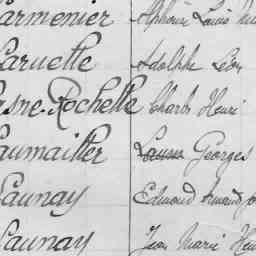 armenier Alphonse Louis
Caruelle Adolphe Léon
asne-Rochelle Charles Henri
aumailler Georges
Launay Edmond Armand
Launay Jean Marie